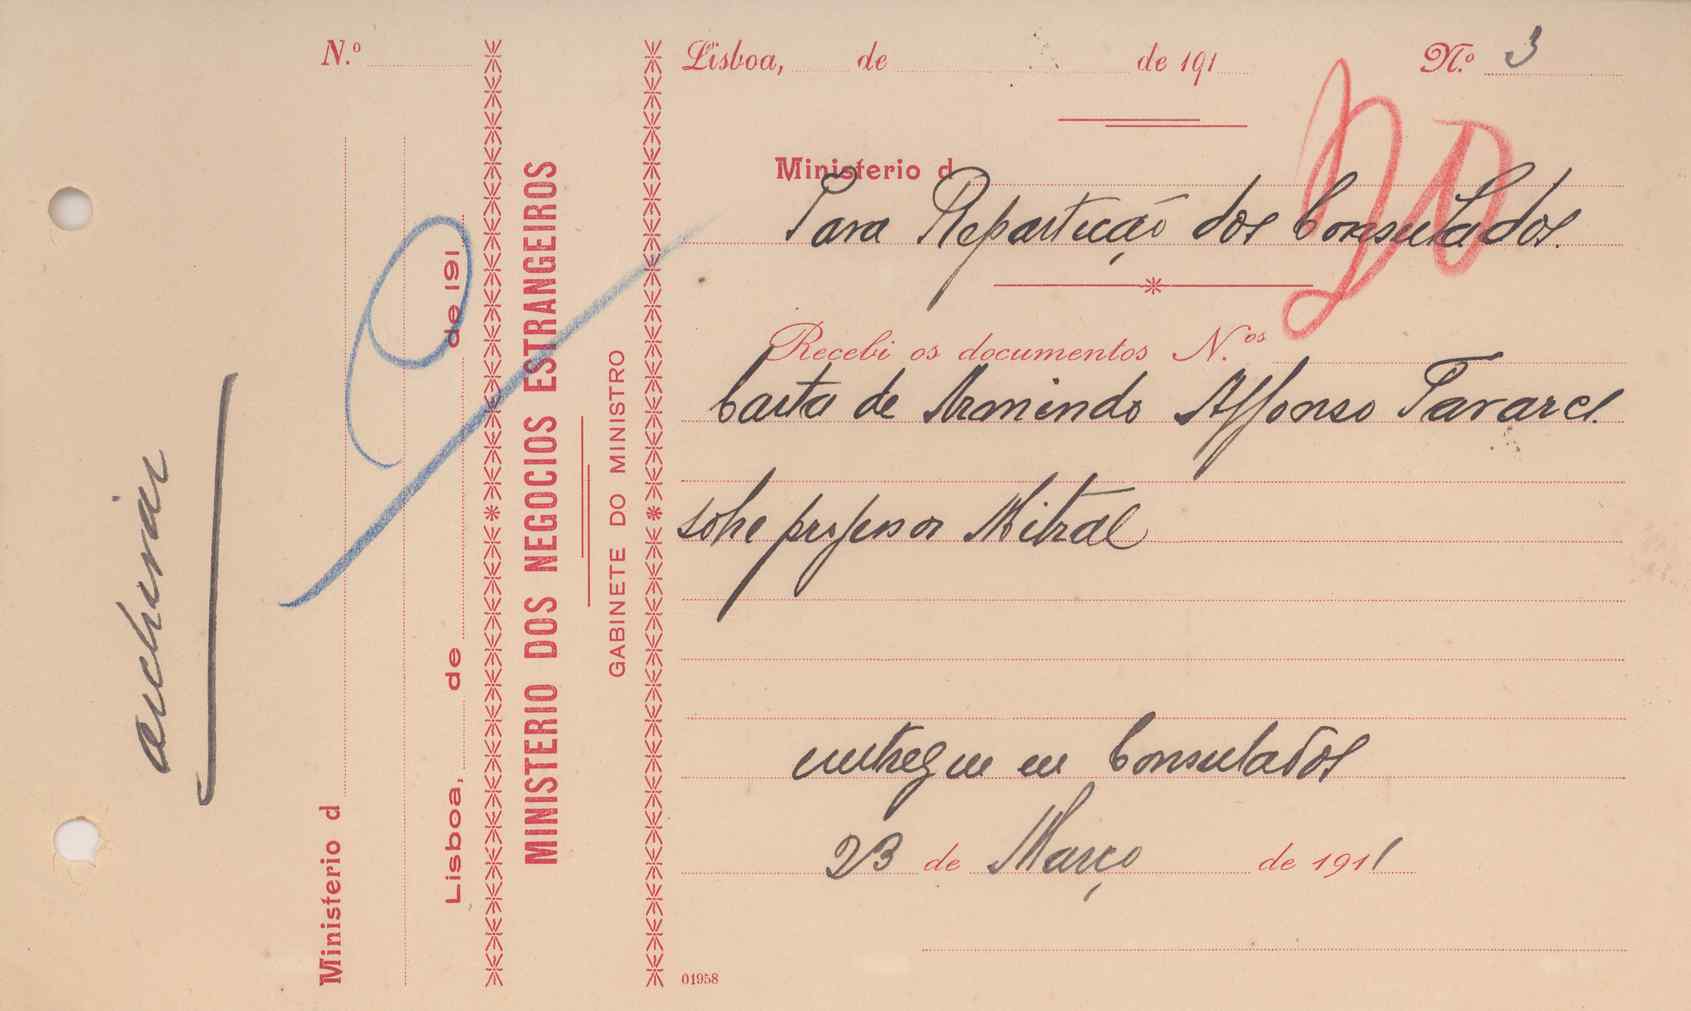 archivar
N.º
Ministerio d
Lisboa, de de 191
MINISTERIO DOS NEGOCIOS ESTRANGEIROS
GABINETE DO MINISTRO
Lisboa, de de 191 N.º 3
20
Ministerio d
Para Repartição dos Consulados.
Recebi os documentos N.ºs
Carta de Armindo Affonso Tavares.
sobre professor Mitral
entregue em Consulados
23 de Março de 1911
01958